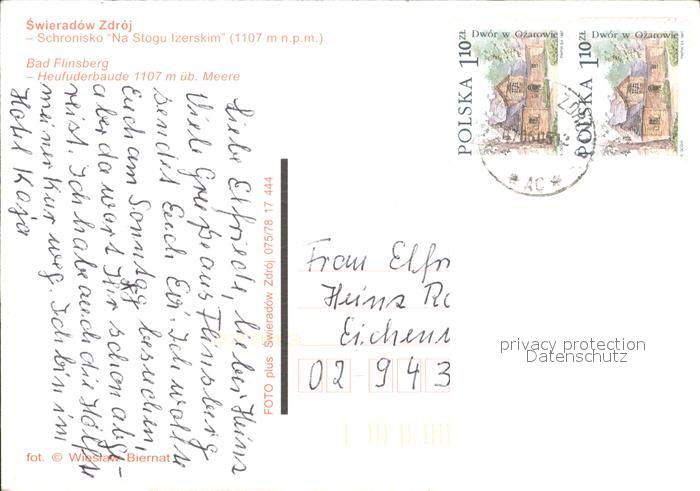 Świeradów Zdrój
– Schronisko "Na Stogu Izerskim" (1107 m n.p.m.)
Bad Flinsberg
– Heufuderbaude 1107 m üb. Meere
Liebe Elfriede, lieber Heinz
Viele Grüße aus Flinsberg
sendet Euch Evi. Ich wollte
Euch am Sonntag besuchen,
aber da wart Ihr schon abge-
reist. Ich habe auch die Hälfte
meiner Kur weg. Ich bin im
Hotel Kaja
fot. © Wiesław Biernat
FOTO plus Świeradów Zdrój 075/78 17 444
POLSKA 1,10ZŁ Dwór w Ożarowie
POLSKA 1,10ZŁ Dwór w Ożarowie
* AC *
Frau Elfr
Heinz Ro
Eichen
02-943
privacy protection
Datenschutz